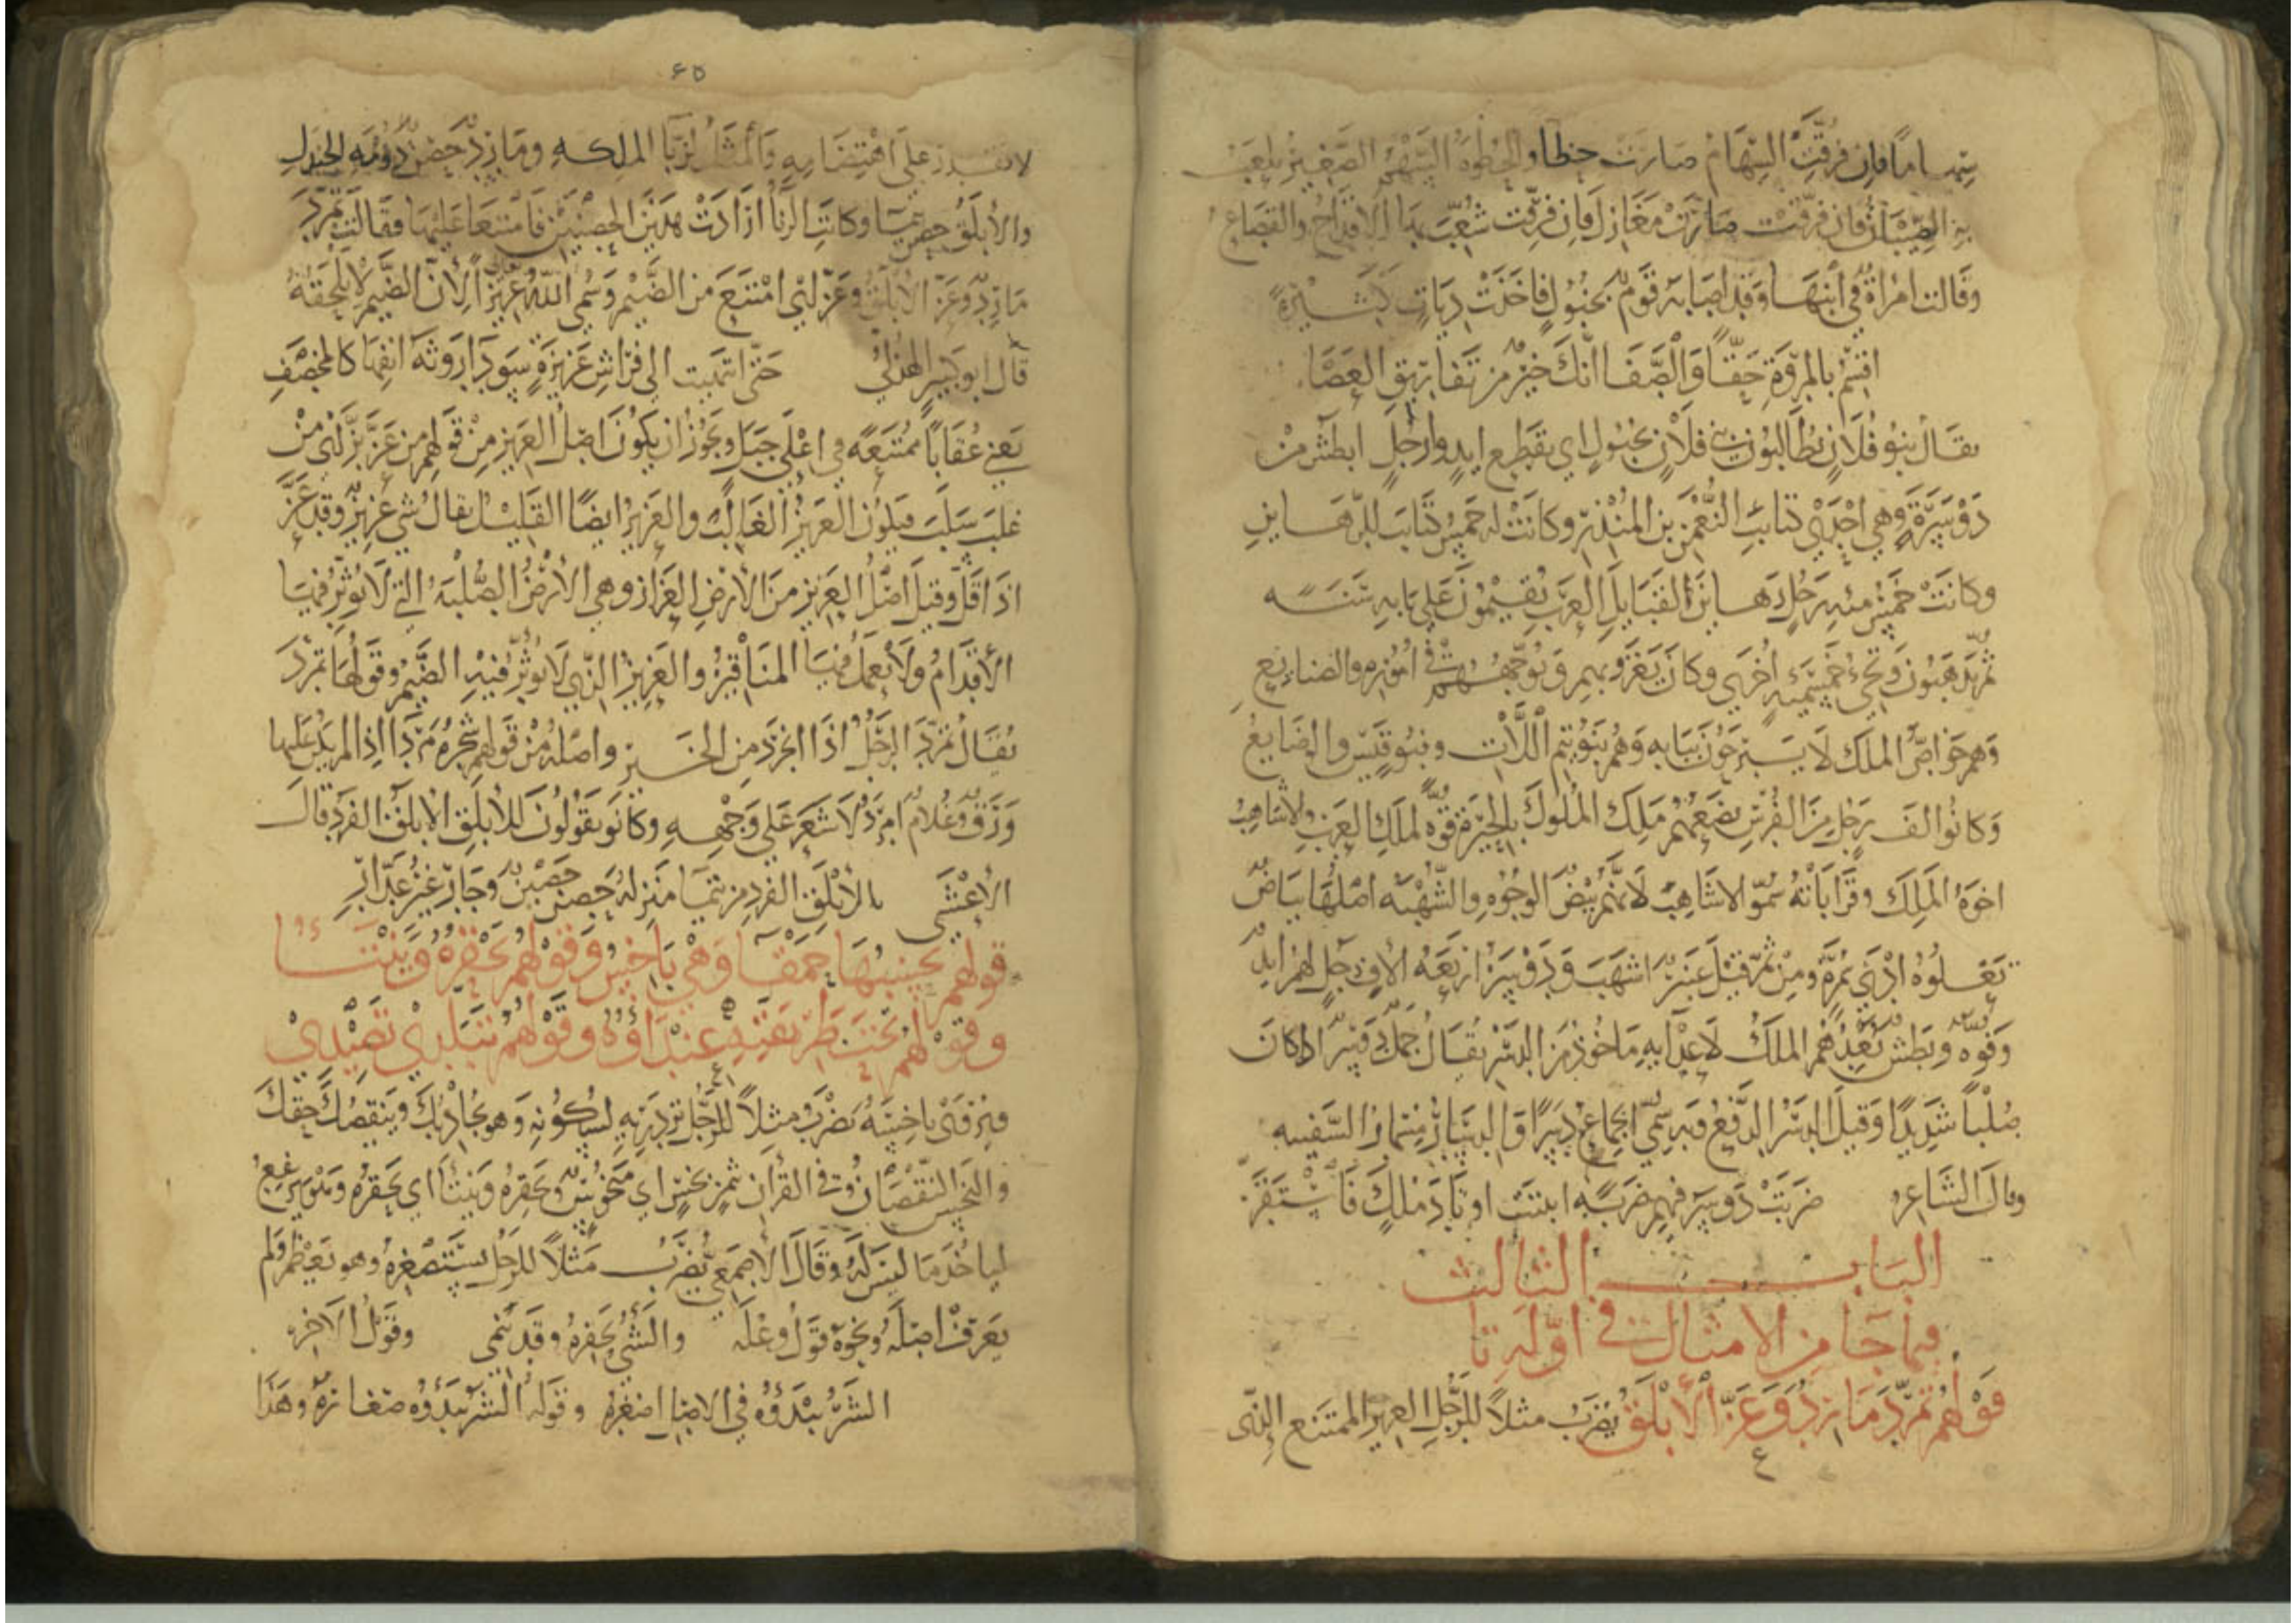 سهاما فان فرقت السهام صارت حظا والحظوة السهم الصغير يلعب
به الصبيان فان فرقت صارت مغازل فان فرقت شعب بها الاقداح والقصاع
وقالت امراة في ابنها وقد اصابه قوم بخبول فاخذت ديات كثيرة
اقسم بالمروة حقا والصفا انك خير من تفاريق العصا
يقال بنو فلان يطالبون بني فلان بخبول اي بقطع ايد وارجل ابطش من
دوسرة وهي احدي كتائب النعمن بن المنذر وكانت له خمس كتائب للرهاين
وكانت خمس مئه رجل رهاين القبايل العرب يقيمون علي بابه سنه
ثم يذهبون وتجيء خمسميه اخري وكان يغزو بهم ويوجههم في اموره والصنايع
وهم خواص الملك لا يبرحون ببابه وهم بنو تيم اللات وبنو قيس والوضايع
وكانوا الف رجل من الفرس يضعهم ملك الملوك بالحيرة قوة لملك العرب والاشاهب
اخوة الملك وقراباته سموا الاشاهب لانهم بيض الوجوه والشهبه اصلها بياض
تعلوه ادني ومن ثم قيل عنبر اشهب ودوسر اربعه الاف رجل لهم ايد
وقوه وبطش يعدهم الملك لاعدايه ماخوذ من الدسر يقال جمل دوسر اذا كان
صلبا شديدا وقيل الدسر الدفع وبه سمي الجماع دسرا والدسار مسمار السفينه
وقال الشاعر ضربت دوسر فيهم ضربه اثبتت اوتاد ملك فاستقر
الباب الثالث
فيما جا من الامثال في اوله تا
قولهم تمرد مارد وعز الابلق يضرب مثلا للرجل العزيز الممتنع الذي
٤٥
لا تقدر علي اهتضامه والمثل لزبا الملكه ومارد حصن دومه الجندل
والابلق حصن تيما وكانت الزبا ارادت هذين الحصنين فامتنعا عليها فقالت تمرد
مارد وعز الابلق وعز اي امتنع من الضيم وسمي الله عزيزا لان الضيم لا يلحقه
قال ابو كبير الهذلي حتي انتهيت الي فراش عزيزة سودا روثة انفها كالمخصف
يعني عقابا ممتنعه في اعلي جبل ويجوز ان يكون اصل العزيز من قولهم من عز بز اي من
غلب سلب فيكون العزيز الغالب والعزيز ايضا القليل يقال شي عزيز وقد عز
اذا قل وقيل اصل العزيز من الارض العزاز وهي الارض الصلبة التي لا يوثر فيها
الاقدام ولا يعمل فيها المناقير والعزيز الذي لا يوثر فيه الضيم وقولها تمرد
يقال تمرد الرجل اذا انجرد من الخير واصله من قولهم شجره مردا اذا لم يكن عليها
ورق وغلام امرد لا شعر علي وجهه وكانو يقولون للابلق الابلق الفرد قال
الاعشي بالابلق الفرد من تيما منزله حصن حصين وجار غير غدار
قولهم تحسبها حمقا وهي باخس وقولهم تحقره وينتا
وقولهم تحت طريقته عنداوه وقولهم تبلدي تصيدي
فيرفتي باخسه يضرب مثلا للرجل تزدريه لسكونه وهو يجاذبك وينقصك حقك
والبخس النقصان وفي القران ثمن بخس اي مبخوس وتحقره وينتا اي تحقره وهو يرتفع
لياخذ ما ليس له وقال الاصمعي يضرب مثلا للرجل يستصغره وهو يعظم ولم
يعرف اصله ونحوه قول وعله والشي تحقره وقد ينمي وقول الاخر
الشر يبدؤه في الاصل اصغره وقوله الشر يبدؤه صغاره وهذا